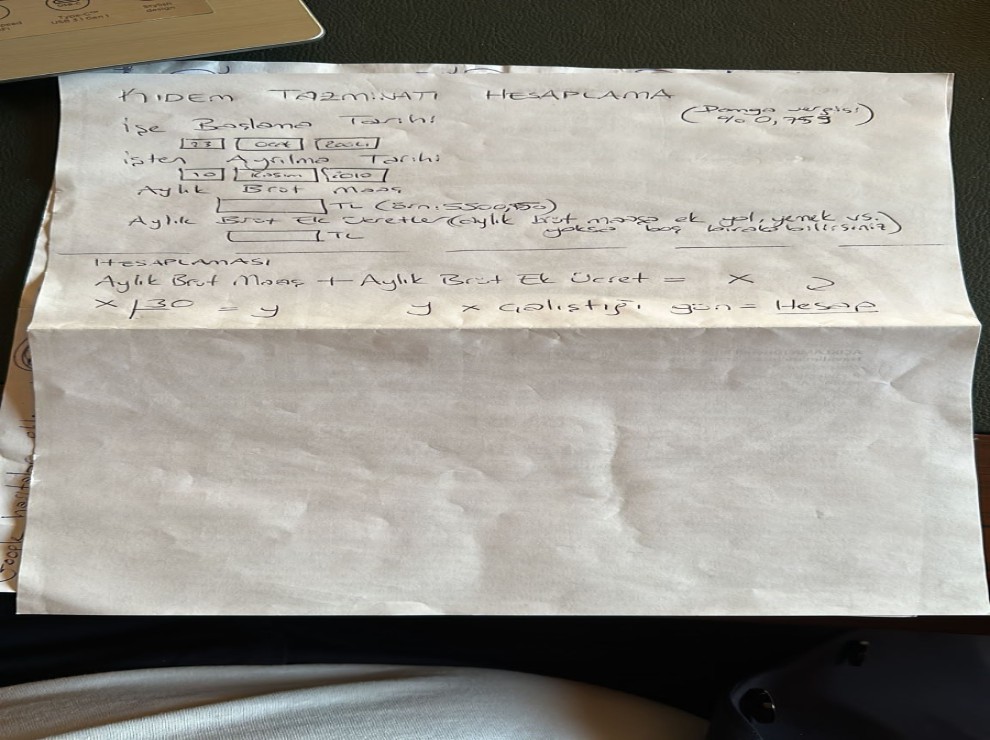 Type-C™
USB 3.1 Gen 1
Stylish
design
KIDEM TAZMİNATI HESAPLAMA
(Damga vergisi
% 0,759)
İşe Başlama Tarihi
23 Ocak 2004
işten Ayrılma Tarihi
10 Kasım 2010
Aylık Brüt maaş
TL (örn: 5500,
Aylık Brüt Ek ücretler (aylık brüt maaşa ek yol, yemek vs.
yoksa boş bırakabilirsiniz)
TL
HESAPLAMASI
Aylık Brüt Maaş + Aylık Brüt Ek Ücret = X
X / 30 = y y x çalıştığı gün = Hesap
Google